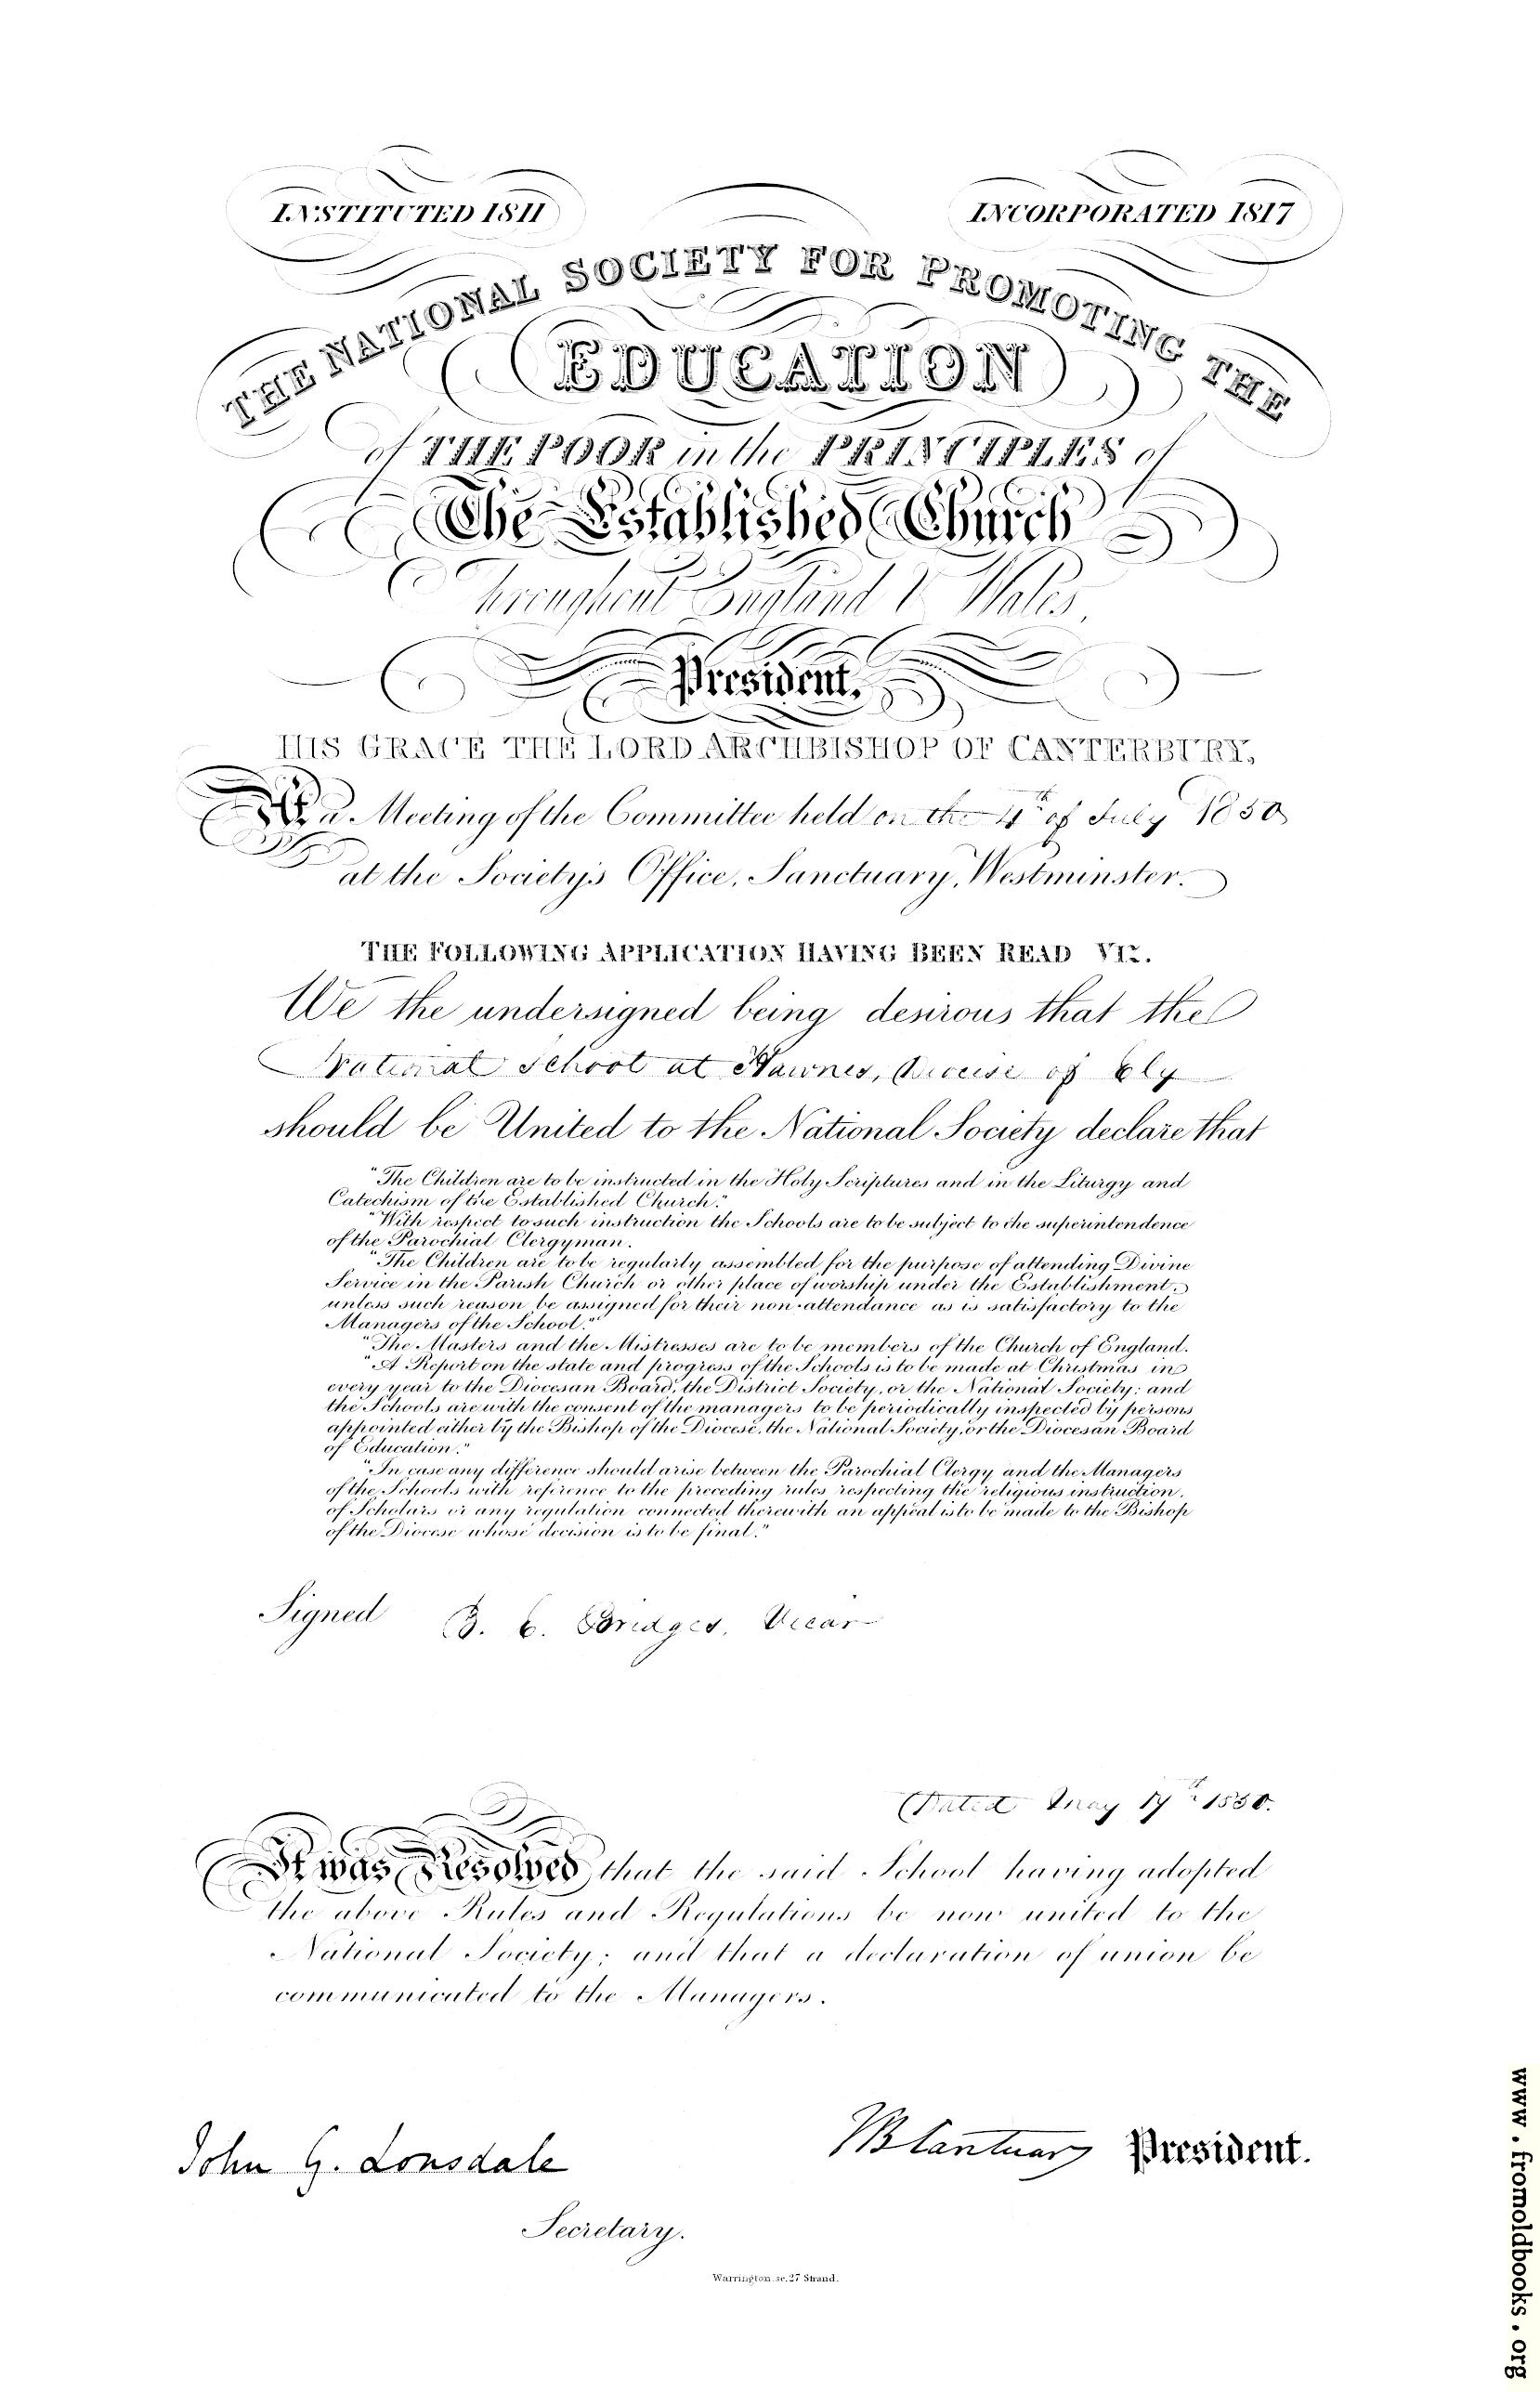 INSTITUTED 1811
INCORPORATED 1817
THE NATIONAL SOCIETY FOR PROMOTING THE
EDUCATION
of THE POOR in the PRINCIPLES of
The Established Church
Throughout England & Wales.
President,
HIS GRACE THE LORD ARCHBISHOP OF CANTERBURY,
At a Meeting of the Committee held on the 4th of July 1850
at the Society's Office, Sanctuary, Westminster.
THE FOLLOWING APPLICATION HAVING BEEN READ VIZ.
We the undersigned being desirous that the
National School at Hawnes, Diocese of Ely
should be United to the National Society declare that
"The Children are to be instructed in the Holy Scriptures and in the Liturgy and
Catechism of the Established Church."
"With respect to such instruction the Schools are to be subject to the superintendence
of the Parochial Clergyman.
"The Children are to be regularly assembled for the purpose of attending Divine
Service in the Parish Church or other place of worship under the Establishment,
unless such reason be assigned for their non-attendance as is satisfactory to the
Managers of the School."
"The Masters and the Mistresses are to be members of the Church of England.
"A Report on the state and progress of the Schools is to be made at Christmas in
every year to the Diocesan Board, the District Society, or the National Society; and
the Schools are with the consent of the managers to be periodically inspected by persons
appointed either by the Bishop of the Diocese, the National Society, or the Diocesan Board
of Education."
"In case any difference should arise between the Parochial Clergy and the Managers
of the Schools with reference to the preceding rules respecting the religious instruction,
of Scholars or any regulation connected therewith an appeal is to be made to the Bishop
of the Diocese whose decision is to be final."
Signed B. C. Bridges, Vicar
Dated May 17th 1850.
It was Resolved that the said School having adopted
the above Rules and Regulations be now united to the
National Society; and that a declaration of union be
communicated to the Managers.
John G. Lonsdale
JB Cantuar President.
Secretary.
Warrington. sc. 27 Strand.
www.fromoldbooks.org